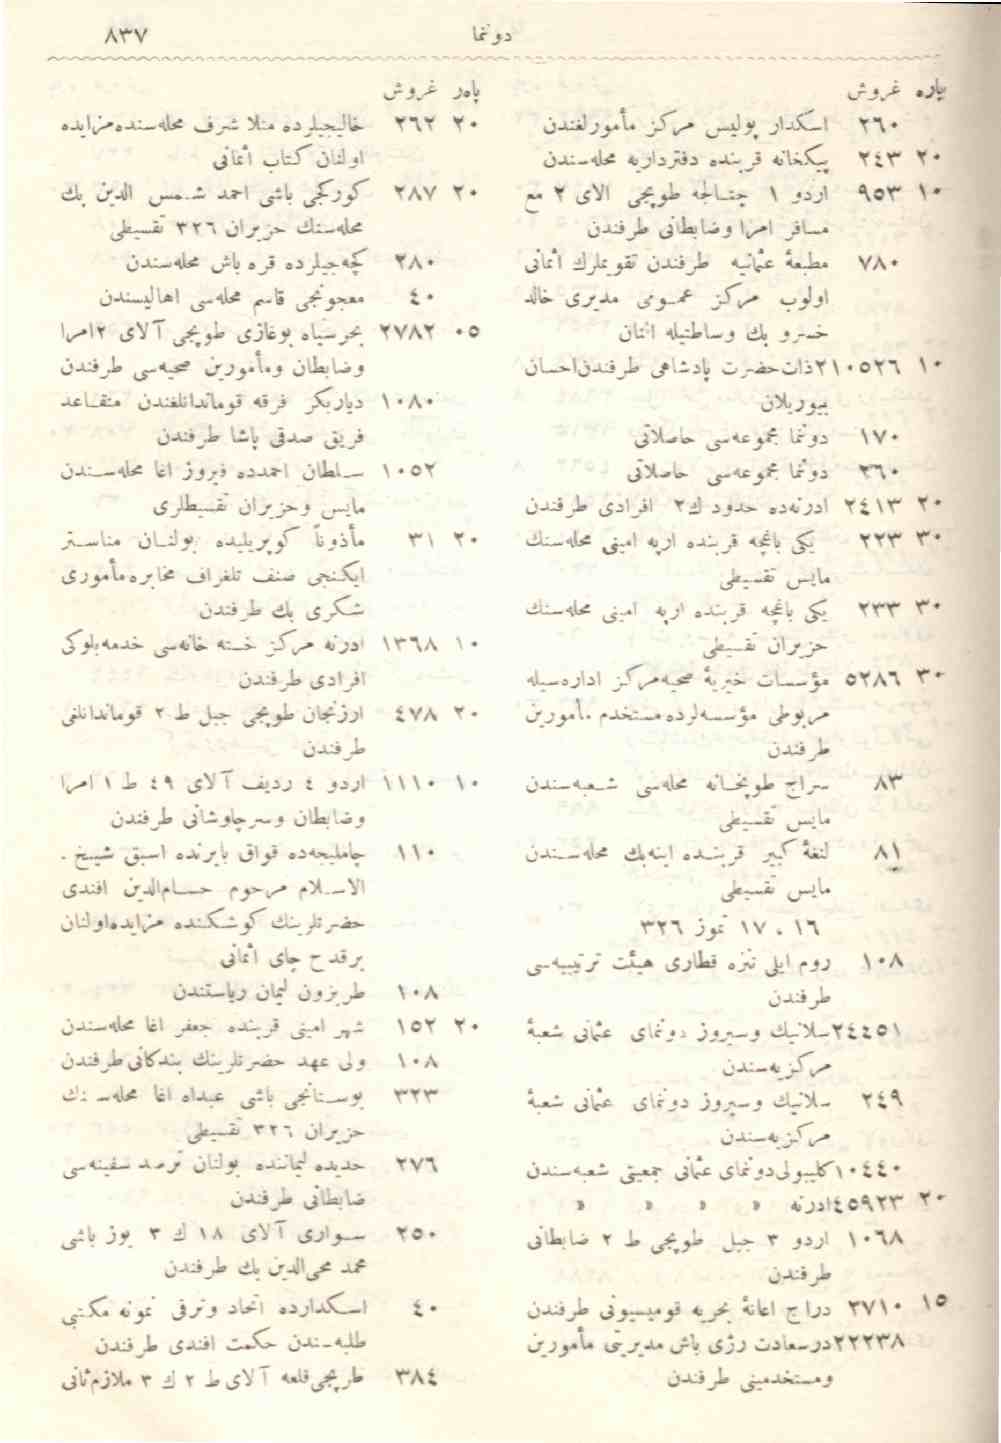 دوننما ٨٣٧
پاره غروش
٢٦٠ اسكدار پوليس مركز مأمورلغندن
٢٠ ٢٤٣ پيكخانه قربنده دفترداريه محله‌سندن
١٠ ٩٥٣ اردو ١ چتالجه طوپجى الاى ٢ مع
مسافر امرا وضابطانى طرفندن
٧٨٠ مطبعهٔ عثمانيه طرفندن تقويملرك اثمانى
اولوب مركز عمومى مديرى خالد
خسرو بك وساطتيله آلنان
١٠ ٢١٠٥٢٦ ذات حضرت پادشاهى طرفندن احسان
بيوريلان
١٧٠ دوننما مجموعه‌سى حاصلاتى
٣٦٠ دوننما مجموعه‌سى حاصلاتى
٢٠ ٢٤١٣ ادرنه‌ده حدود ك٢ افرادى طرفندن
٣٠ ٢٢٣ يكى باغچه قربنده ارپه امينى محله‌سنك
مايس تقسيطى
٣٠ ٢٣٣ يكى باغچه قربنده ارپه امينى محله‌سنك
حزيران تقسيطى
٣٠ ٥٢٨٦ مؤسسات خيريهٔ صحيه مركز اداره‌سيله
مربوطى مؤسسه‌لرده مستخدم مأمورين
طرفندن
٨٣ سراج طوپخانه محله‌سى شعبه‌سندن
مايس تقسيطى
٨١ لنغهٔ كبير قربنده اينه‌بك محله‌سندن
مايس تقسيطى
١٦ ، ١٧ تموز ٣٢٦
١٠٨ روم ايلى تنزه قطارى هيئت ترتيبيه‌سى
طرفندن
٢٤٤٥١ سلانيك وسيروز دوننماى عثمانى شعبهٔ
مركزيه‌سندن
٢٤٩ سلانيك وسيروز دوننماى عثمانى شعبهٔ
مركزيه‌سندن
١٠٤٤٠ كليبولى دوننماى عثمانى جمعيتى شعبه‌سندن
٢٠ ٤٥٩٢٣ ادرنه » » » »
١٠٦٨ اردو ٣ جبل طوپجى ط ٢ ضابطانى
طرفندن
١٥ ٣٧١٠ دراج اعانهٔ بحريه قوميسيونى طرفندن
٢٢٢٣٨ درسعادت رژى باش مديريتى مأمورين
ومستخدمينى طرفندن
پاره غروش
٢٠ ٢٦٢ خاليجيلرده منلا شرف محله‌سنده مزايده
اولنان كتاب اثمانى
٢٠ ٢٨٧ كوركجى باشى احمد شمس الدين بك
محله‌سنك حزيران ٣٢٦ تقسيطى
٢٨٠ كچه‌جيلرده قره باش محله‌سندن
٤٠ معجونجى قاسم محله‌سى اهاليسندن
٠٥ ٢٧٨٢ بحرسياه بوغازى طوپجى آلاى ٢ امرا
وضابطان ومأمورين صحيه‌سى طرفندن
١٠٨٠ دياربكر فرقه قوماندانلغندن متقاعد
فريق صدقى پاشا طرفندن
١٠٥٢ سلطان احمدده فيروز اغا محله‌سندن
مايس وحزيران تقسيطلرى
٢٠ ٣١ مأذوناً كوپريليده بولنان مناستر
ايكنجى صنف تلغراف مخابره مأمورى
شكرى بك طرفندن
١٠ ١٣٦٨ ادرنه مركز خسته خانه‌سى خدمه بلوكى
افرادى طرفندن
٢٠ ٤٧٨ ارزنجان طوپجى جبل ط ٢ قوماندانلغى
طرفندن
١٠ ١١١٠ اردو ٤ رديف آلاى ٤٩ ط ١ امرا
وضابطان وسرچاوشانى طرفندن
١١٠ چامليجه‌ده قواق بايرنده اسبق شيخ
الاسلام مرحوم حسام‌الدين افندى
حضرتلرينك كوشكنده مزايده اولنان
برقدح چاى اثمانى
١٠٨ طربزون ليمان رياستندن
٢٠ ١٥٢ شهر امينى قربنده جعفر اغا محله‌سندن
١٠٨ ولى عهد حضرتلرينك بندكانى طرفندن
٣٢٣ بوستانجى باشى عبداه اغا محله‌سنك
حزيران ٣٢٦ تقسيطى
٢٧٦ حديده ليماننده بولنان ترصد سفينه‌سى
ضابطانى طرفندن
٢٥٠ سوارى آلاى ١٨ ك ٣ يوز باشى
محمد محى‌الدين بك طرفندن
٤٠ اسكدارده اتحاد وترقى نمونه مكتبى
طلبه‌سندن حكمت افندى طرفندن
٣٨٤ طوپجى قلعه آلاى ط ٢ ك ٣ ملازم ثانى